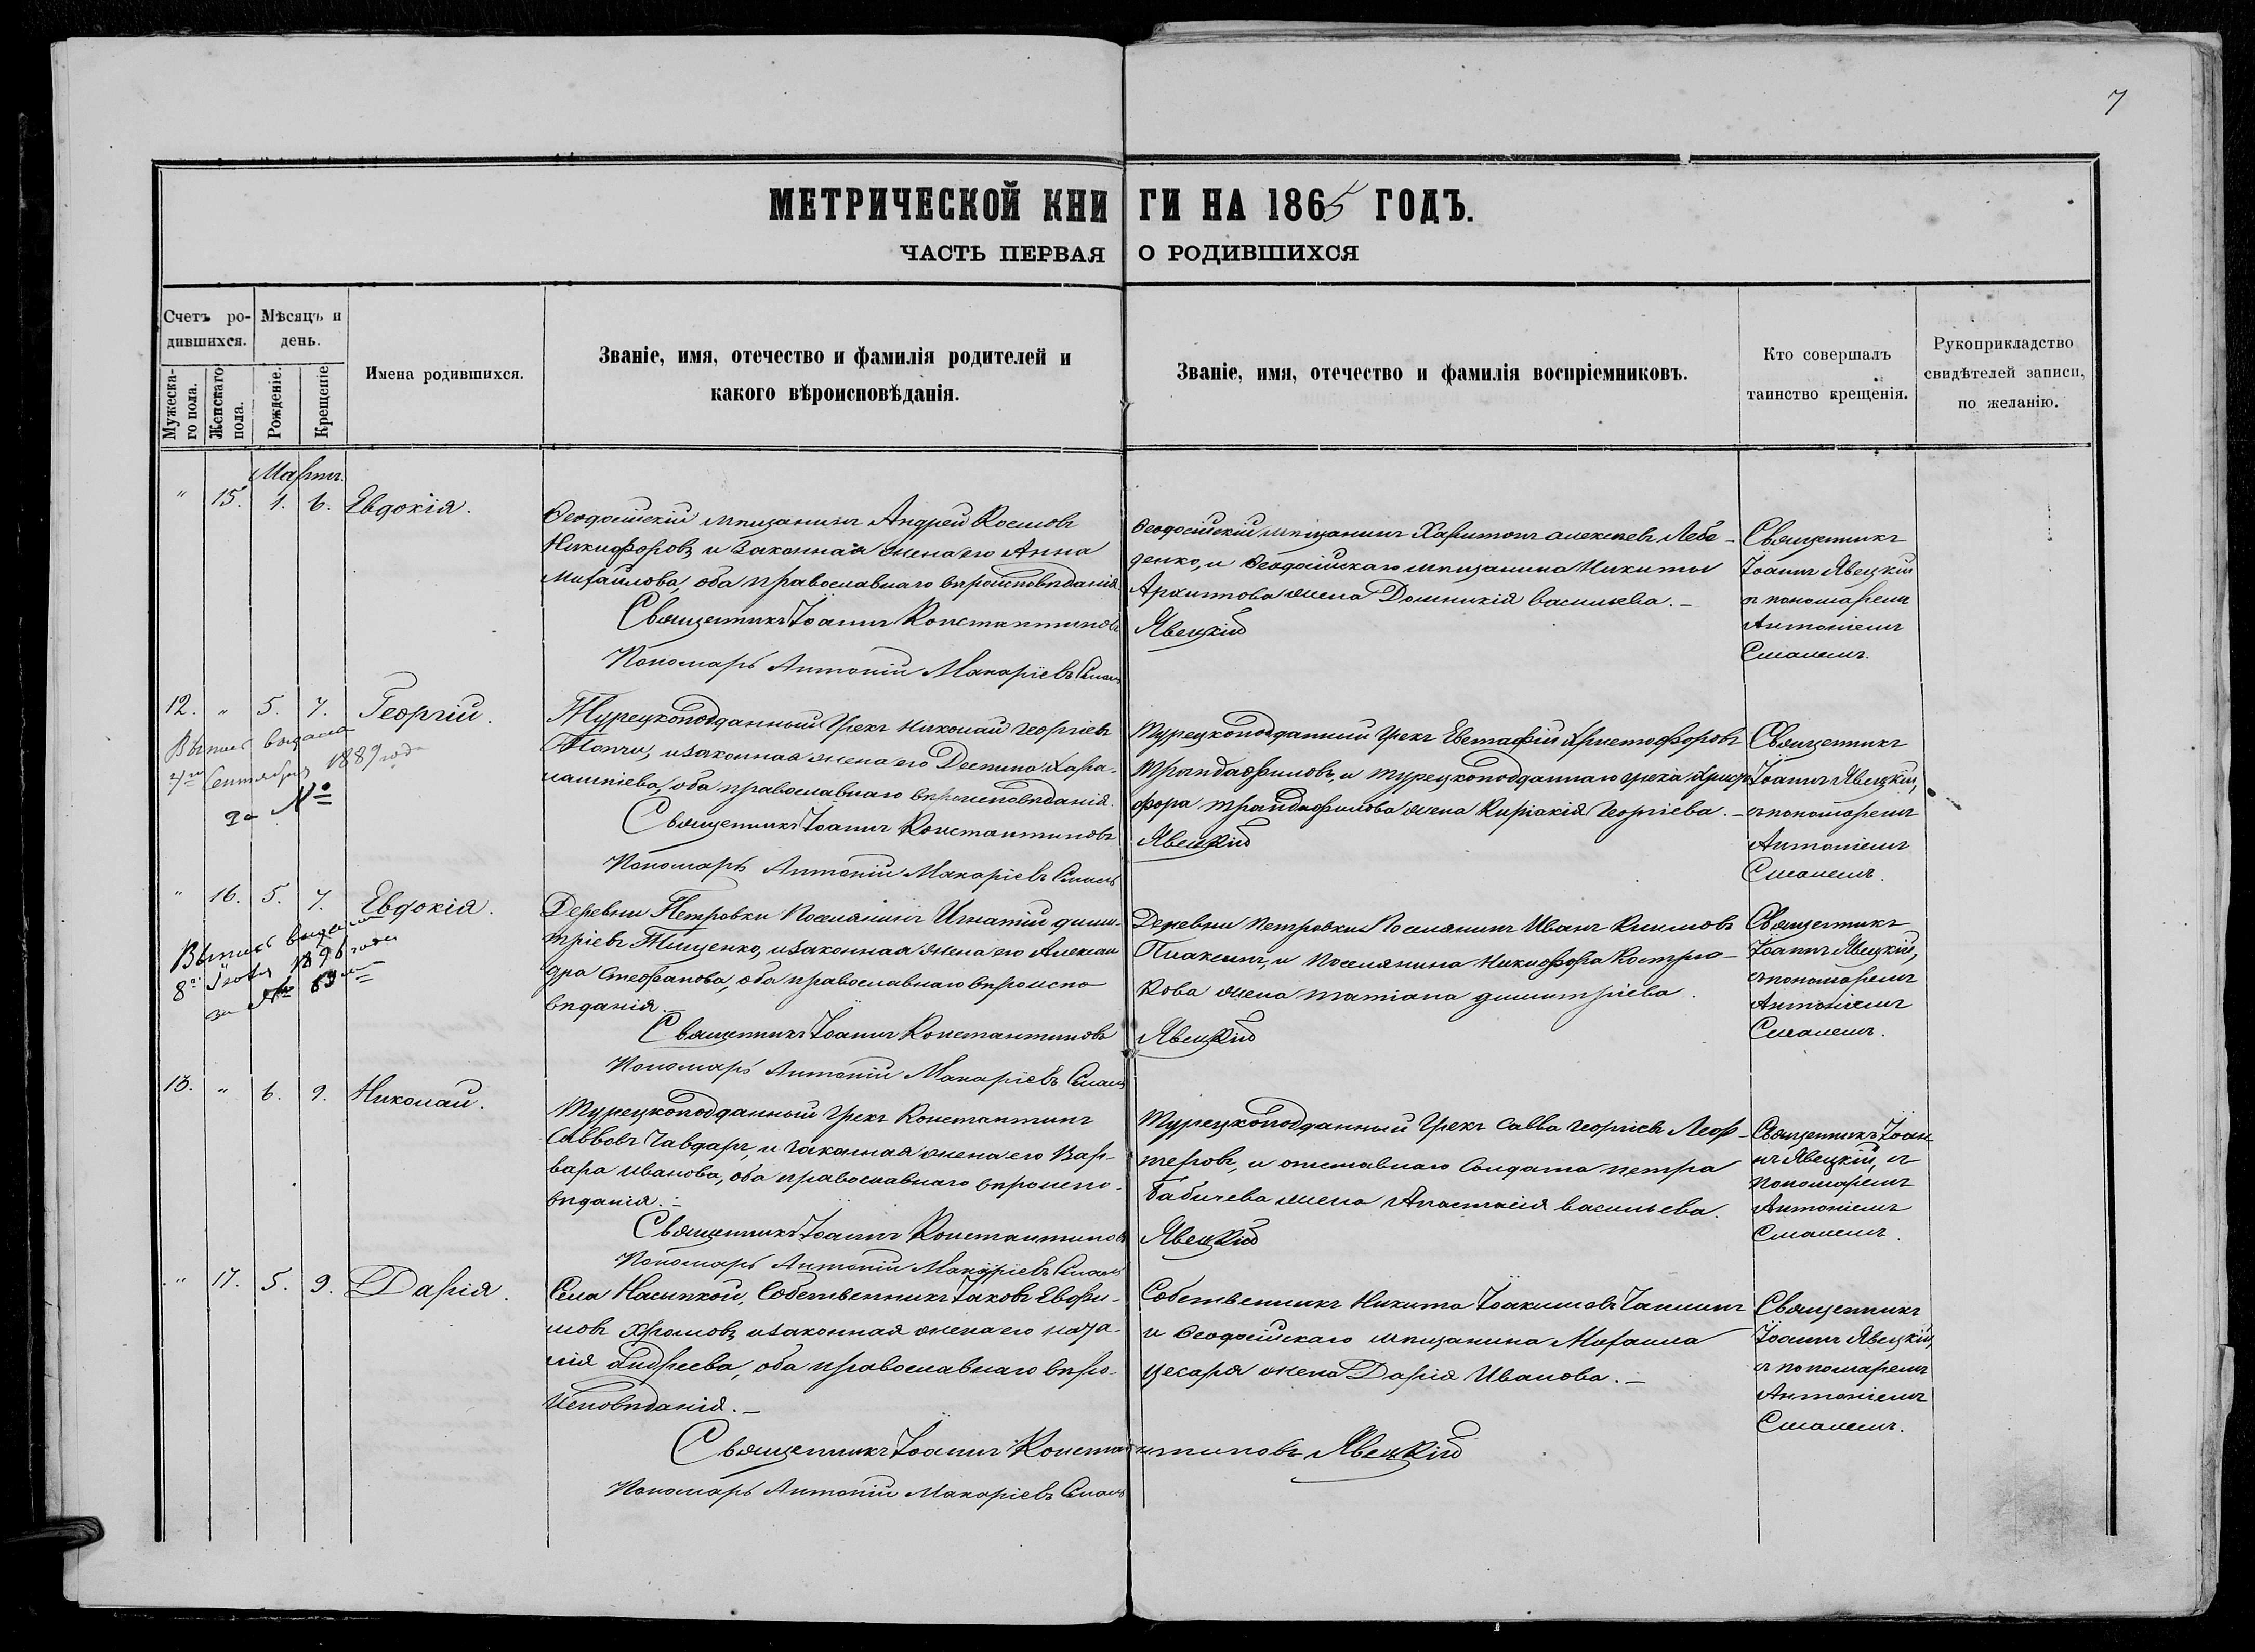 7
МЕТРИЧЕСКОЙ КНИГИ НА 1865 ГОДЪ.
ЧАСТЬ ПЕРВАЯ О РОДИВШИХСЯ
Счетъ ро-
дившихся.
Мужеска-
го пола.
Женскаго
пола.
Мѣсяцъ и
день.
Рожденіе.
Крещеніе
Имена родившихся.
Званіе, имя, отечество и фамилія родителей и
какого вѣроисповѣданія.
Званіе, имя, отечество и фамилія воспріемниковъ.
Кто совершалъ
таинство крещенія.
Рукоприкладство
свидѣтелей записи,
по желанію.
Мартъ.
" 15. 1. 6. Евдокія.
Ѳеодосійскій мѣщанинъ Андрей Космовъ
Никифоровъ и законная жена его Анна
Михайлова, оба православнаго вѣроисповѣданія.
Священникъ Іоаннъ Константиновъ
Явецкій
Пономарь Антоній Макаріевъ
Ѳеодосійскій мѣщанинъ Харитонъ Алексѣевъ Лебе-
денко, и Ѳеодосійскаго мѣщанина Никиты
Архиптова жена Домникія Васильева. —
Священникъ
Іоаннъ Явецкій
съ пономаремъ
Антоніемъ
12. " 5. 7. Георгій.
Выпись выдана
7го Сентября 1889 года
за №
Турецкоподданный Грекъ Николай Георгіевъ
Топчи, и законная жена его Деспина Хара-
лампіева, оба православнаго вѣроисповѣданія.
Священникъ Іоаннъ Константиновъ
Явецкій
Пономарь Антоній Макаріевъ
Турецкоподданный Грекъ Евстафій Христофоровъ
Трандафиловъ, и турецкоподданнаго грека Христо
фора Трандафилова жена Киріакія Георгіева. —
Священникъ
Іоаннъ Явецкій,
съ пономаремъ
Антоніемъ
" 16. 5. 7. Евдокія.
Выпись выдана
8го 1896 года
за № 89
Деревни Петровки Поселянинъ Игнатій Дими-
тріевъ Тищенко, и законная жена его Алексан
дра Стефанова, оба православнаго вѣроиспо
вѣданія.
Священникъ Іоаннъ Константиновъ
Явецкій
Пономарь Антоній Макаріевъ
Деревни Петровки Поселянинъ Иванъ Климовъ
Плаксинъ, и Поселянина Никифора Костре-
кова жена Татіана Димитріева.
Священникъ
Іоаннъ Явецкій,
съ пономаремъ
Антоніемъ
13. " 6. 9. Николай.
Турецкоподданный Грекъ Константинъ
Саввовъ Чавдаръ, и законная жена его Вар-
вара Иванова, оба православнаго вѣроиспо-
вѣданія. —
Священникъ Іоаннъ Константиновъ
Явецкій
Пономарь Антоній Макаріевъ
Турецкоподданный Грекъ Савва Георгіевъ Леф-
теровъ, и отставнаго Солдата Петра
Бабичева жена Анастасія Васильева.
Священникъ Іоан
нъ Явецкій, съ
пономаремъ
Антоніемъ
" 17. 5. 9. Дарія.
Села Насыпкой, Собственникъ Іаковъ Евфи-
мовъ Хромовъ, и законная жена его
Андреева, оба православнаго вѣро-
исповѣданія. —
Священникъ Іоаннъ Константиновъ Явецкій
Пономарь Антоній Макаріевъ
Собственникъ Никита Іоакимовъ
и Ѳеодосійскаго мѣщанина Михаила
Цесаря жена Дарія Иванова. —
Священникъ
Іоаннъ Явецкій,
съ пономаремъ
Антоніемъ